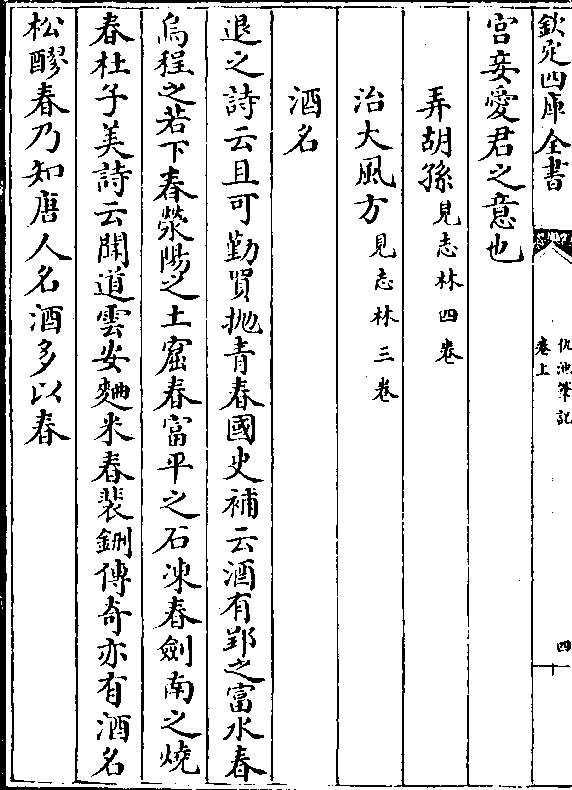 欽定四庫全書
仇池筆記
卷上
四
宫妾愛君之意也
弄胡孫見志林四卷
治大風方見志林三卷
酒名
退之詩云且可勤買抛青春國史補云酒有郢之富水春
烏程之若下春滎陽之土窟春富平之石凍春劍南之燒
春杜子美詩云聞道雲安麯米春裴鉶傳奇亦有酒名
松醪春乃知唐人名酒多以春